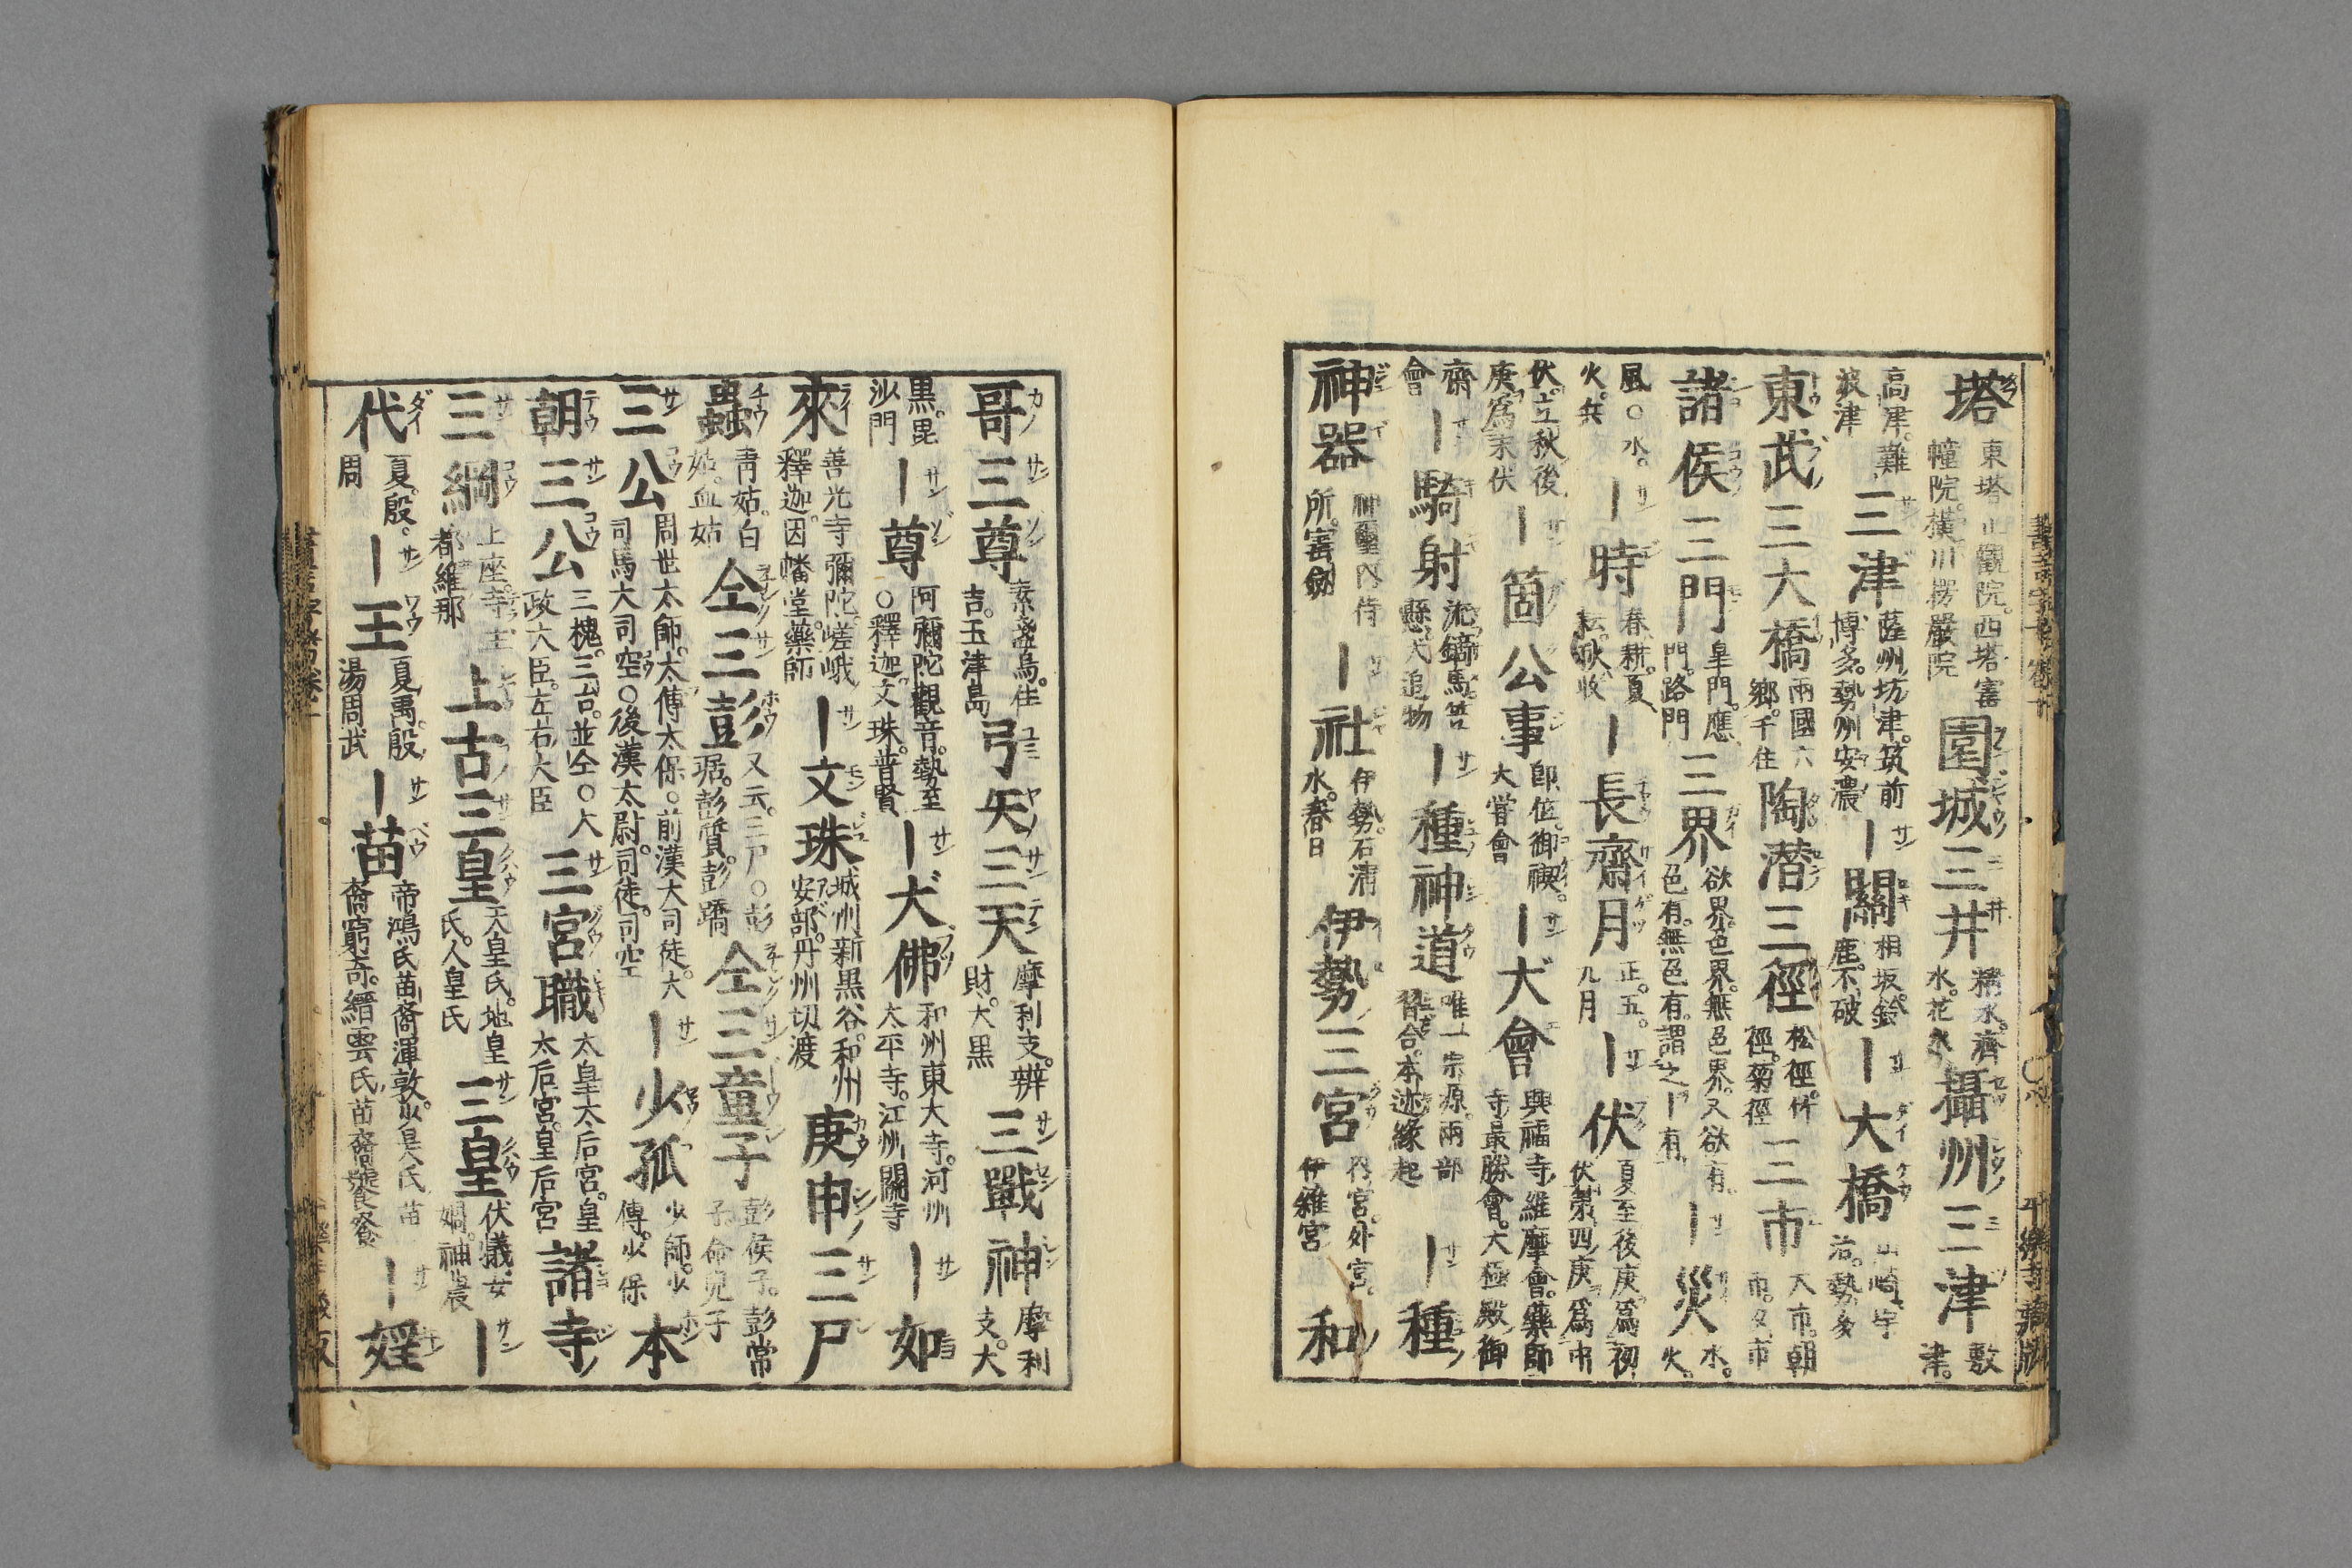 塔 東塔止觀院。西塔寳幢院。横川楞嚴院 園城三井 積水。濟水。花水 攝州三津 敷津。
高津。難波津 三津 薩州坊津。筑前博多。勢州安濃 ｜關 相坂。鈴鹿。不破 ｜大橋 山崎。宇治。勢多
東武三大橋 兩國。六鄉。千住 陶潜三徑 松徑。竹徑。菊徑 三市 大市。朝市。夕市
諸侯三門 皐門。應門。路門 三界 欲界。色界。無色界。又欲有。色有。無色有。謂之｜有 ｜災 水。火。
風○水。火。兵 ｜時 春耕。夏耘。秋收 ｜長齋月 正。五。九月 ｜伏 夏至後庚爲初伏。第四庚爲中
伏。立秋後庚爲末伏 ｜箇公事 卽位。御禊。大嘗會 ｜大會 興福寺維摩會。藥師寺最勝會。大極殿御
齋會 ｜騎射 流鏑馬。笠懸。犬追物 ｜種神道 唯一宗源。兩部習合。本迹緣起 ｜種
神器 神璽。內侍所。寳劒 ｜社 伊勢。石清水。春日 伊勢三宮 內宮。外宮。伊雜宮 和
哥三尊 素盞烏。住吉。玉津島 弓矢三天 摩利支。辨財。大黑 三戰神 摩利支。大
黑。毘沙門 ｜尊 阿彌陀。觀音。勢至○釋迦。文珠。普賢 ｜大佛 和州東大寺。河州太平寺。江州關寺 ｜如
來 善光寺彌陀。嵯峨釋迦。因幡堂藥師 ｜文珠 城州新黑谷。和州安部。丹州切渡 庚申三尸
蟲 靑姑。白姑。血姑 仝三彭 又云。三尸○彭琚。彭質。彭蹻 仝三童子 彭侯子。彭常子。命兒子
三公 周世太師。太傅。太保。○前漢大司徒。大司馬。大司空○後漢太尉。司徒。司空 ｜少孤 少師。少傅。少保 本
朝三公 三槐。三台。並仝○大政大臣。左右大臣 三宮職 太皇太后宮。皇太后宮。皇后宮 諸寺
三綱 上座。寺主。都維那 上古三皇 天皇氏。地皇氏。人皇氏 三皇 伏犧。女媧。神農 ｜
代 夏。殷。周 ｜王 夏禹。殷湯。周武 ｜苗 帝鴻氏苗裔渾敦。少昊氏苗裔窮奇。縉雲氏苗裔饕餮 ｜婬